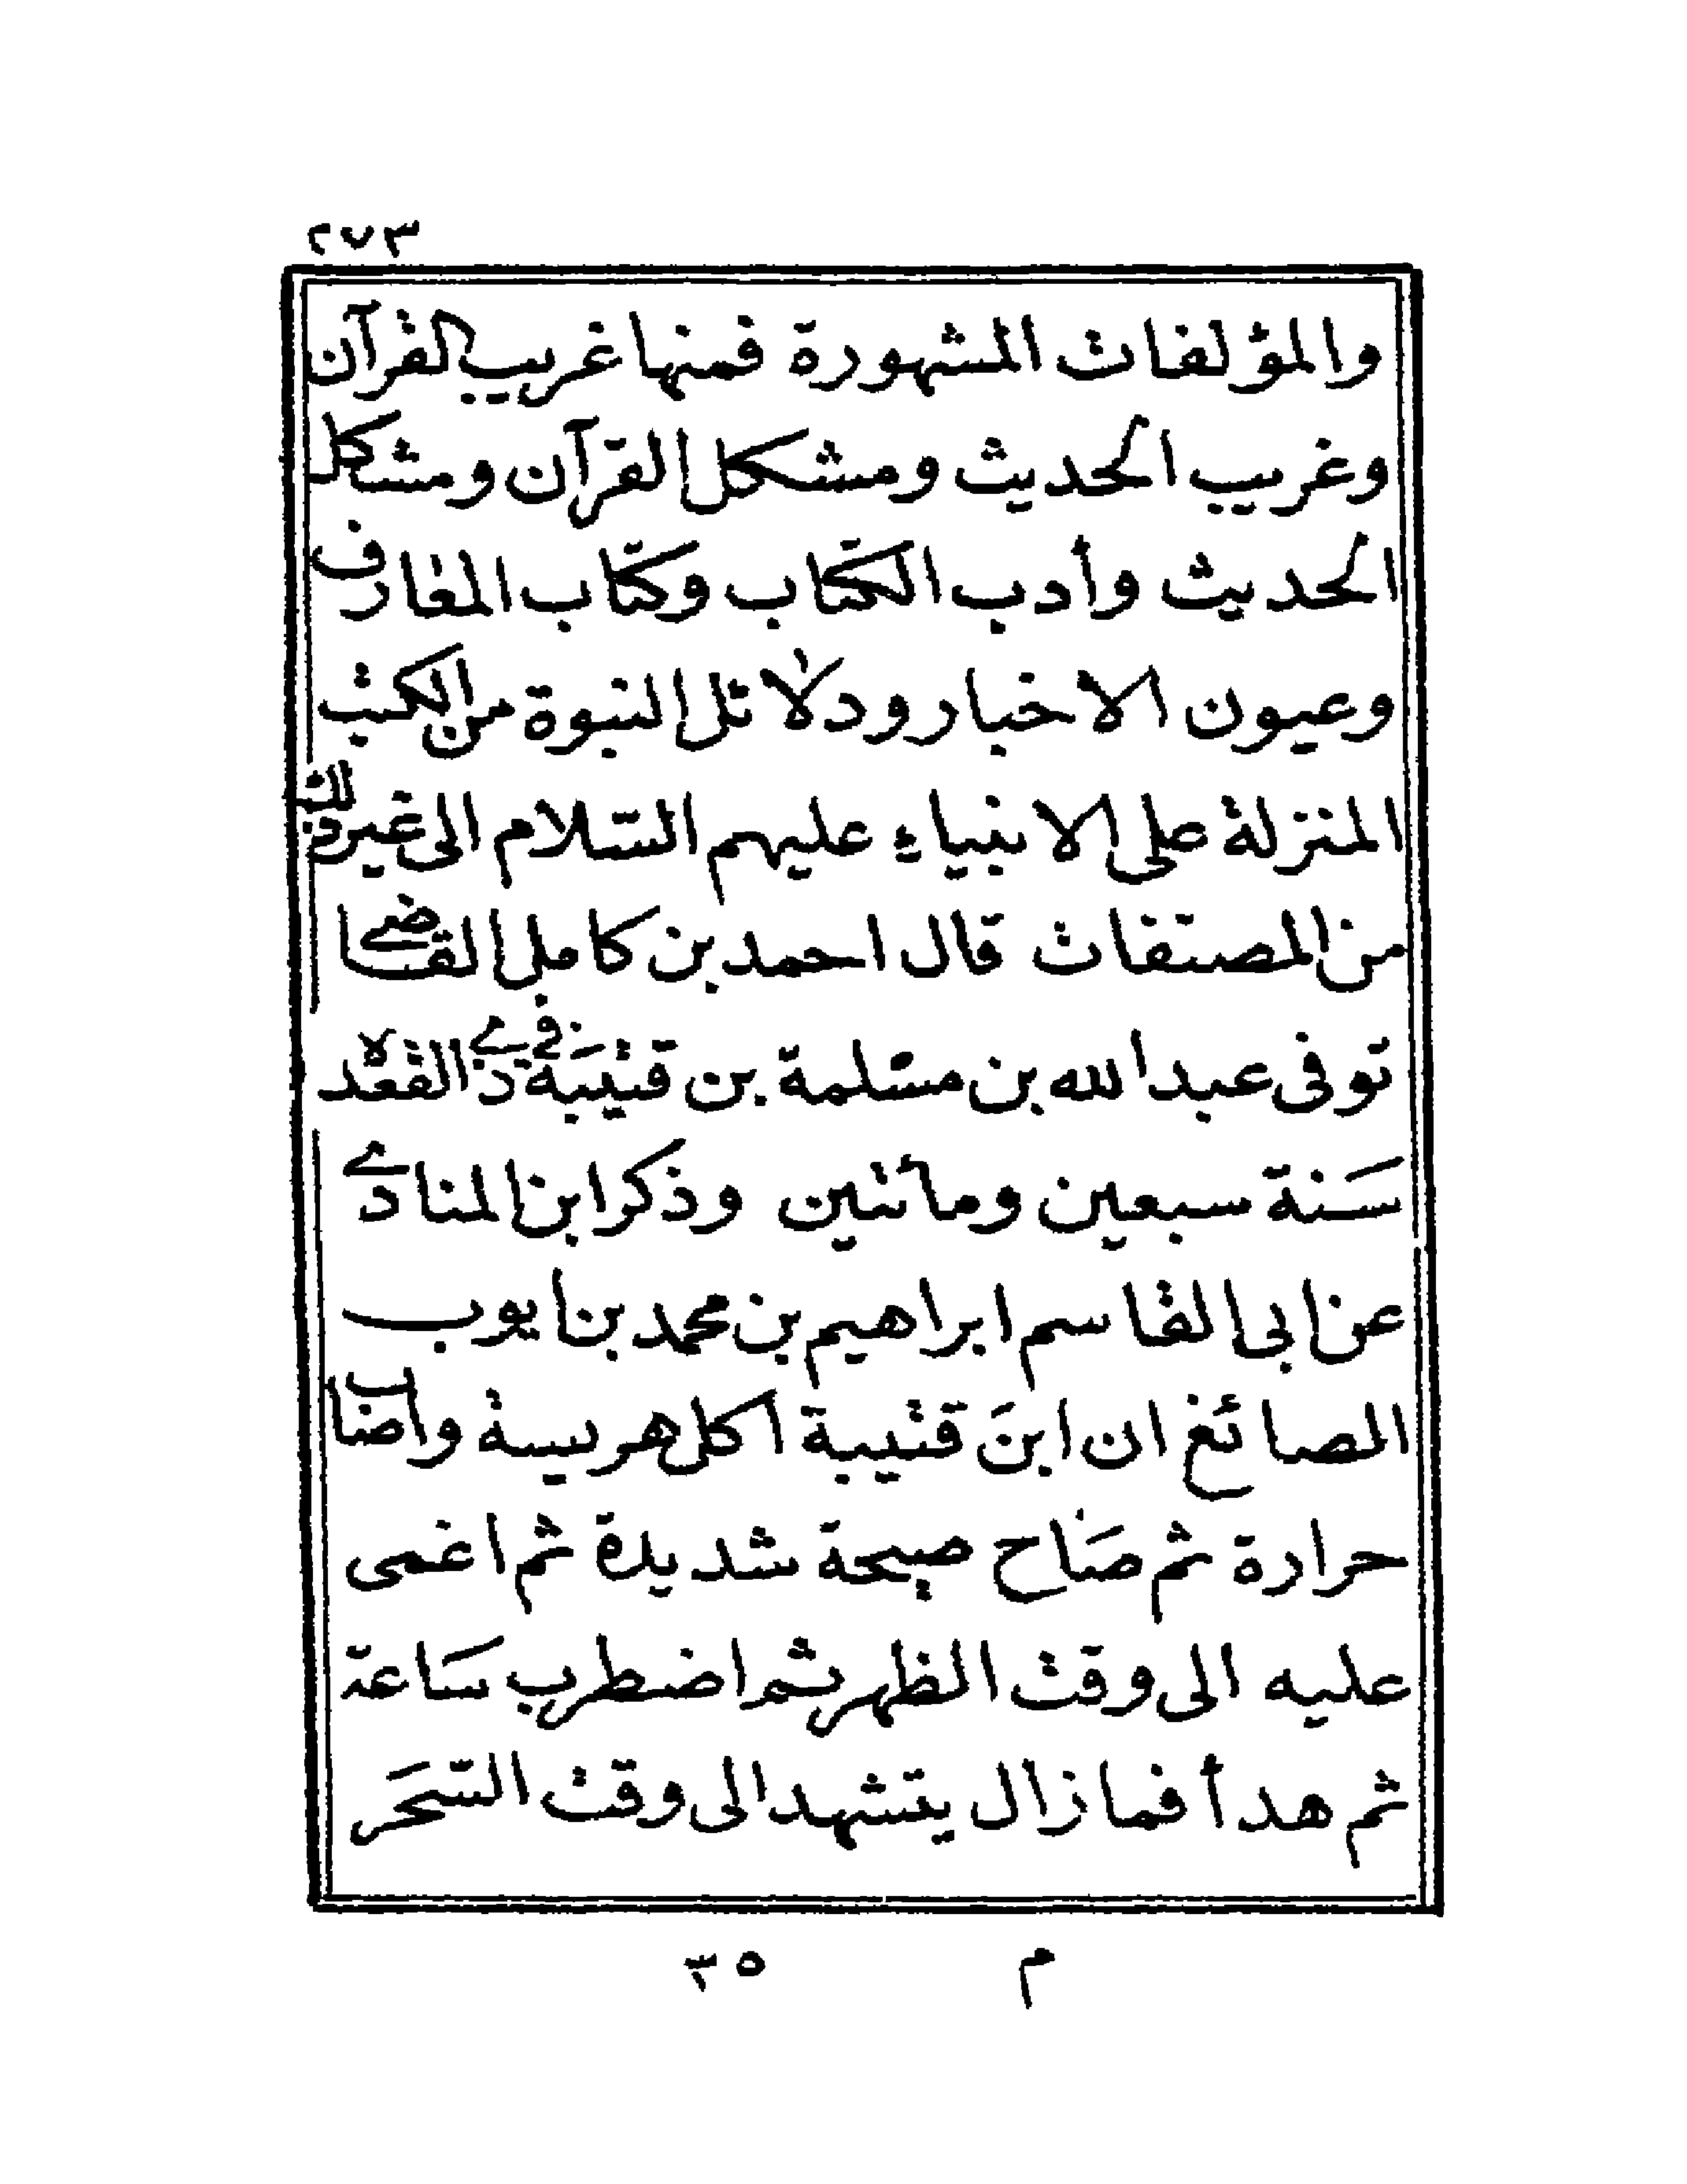 ٢٧٣
والمؤلفات المشهورة فمنها غريب القرآن
وغريب الحديث ومشكل القرآن ومشكل
الحديث وأدب الكتاب وكتاب المعارف
وعيون الاخبار ودلائل النبوة من الكتب
المنزلة على الانبياء عليهم السلام الى غير ذلك
من المصنفات قال احمد بن كامل القاضي
توفى عبد الله بن مسلمة بن قتيبة في ذي القعدة
سنة سبعين ومائتين وذكر ابن المنادي
عن ابى القاسم ابراهيم بن محمد بن ايوب
الصائغ ان ابن قتيبة اكل هريسة واصاب
حرارة ثم صاح صيحة شديدة ثم اغمى
عليه الى وقت الظهر ثم اضطرب ساعة
ثم هدأ فما زال يتشهد الى وقت السحر
م ٣٥